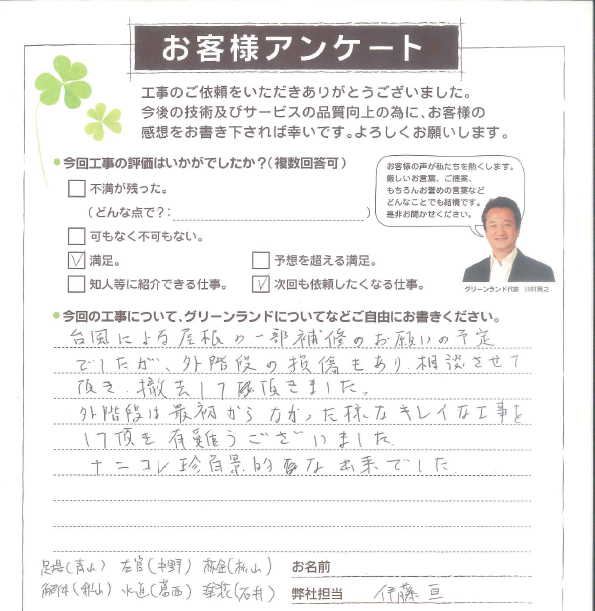 お客様アンケート
工事のご依頼をいただきありがとうございました。
今後の技術及びサービスの品質向上の為に、お客様の
感想をお書き下されば幸いです。よろしくお願いします。
今回工事の評価はいかがでしたか?(複数回答可)
不満が残った。
(どんな点で?: )
可もなく不可もない。
満足。
予想を超える満足。
知人等に紹介できる仕事。
次回も依頼したくなる仕事。
お客様の声が私たちを熱くします。
厳しいお言葉、ご提案、
もちろんお誉めの言葉など
どんなことでも結構です。
是非お聞かせください。
グリーンランド代表 川村実之
今回の工事について、グリーンランドについてなどご自由にお書きください。
台風による屋根の一部補修のお願いの予定
でしたが、外階段の損傷もあり相談させて
頂き撤去して頂きました。
外階段は最初からなかった様なキレイな工事を
して頂き有難うございました
ナニコレ珍百景的な出来でした
足場(青山) 左官(中野) 板金(松山)
解体(秋山) 水道(葛西) 電気(石井)
お名前
弊社担当 伊藤 亘